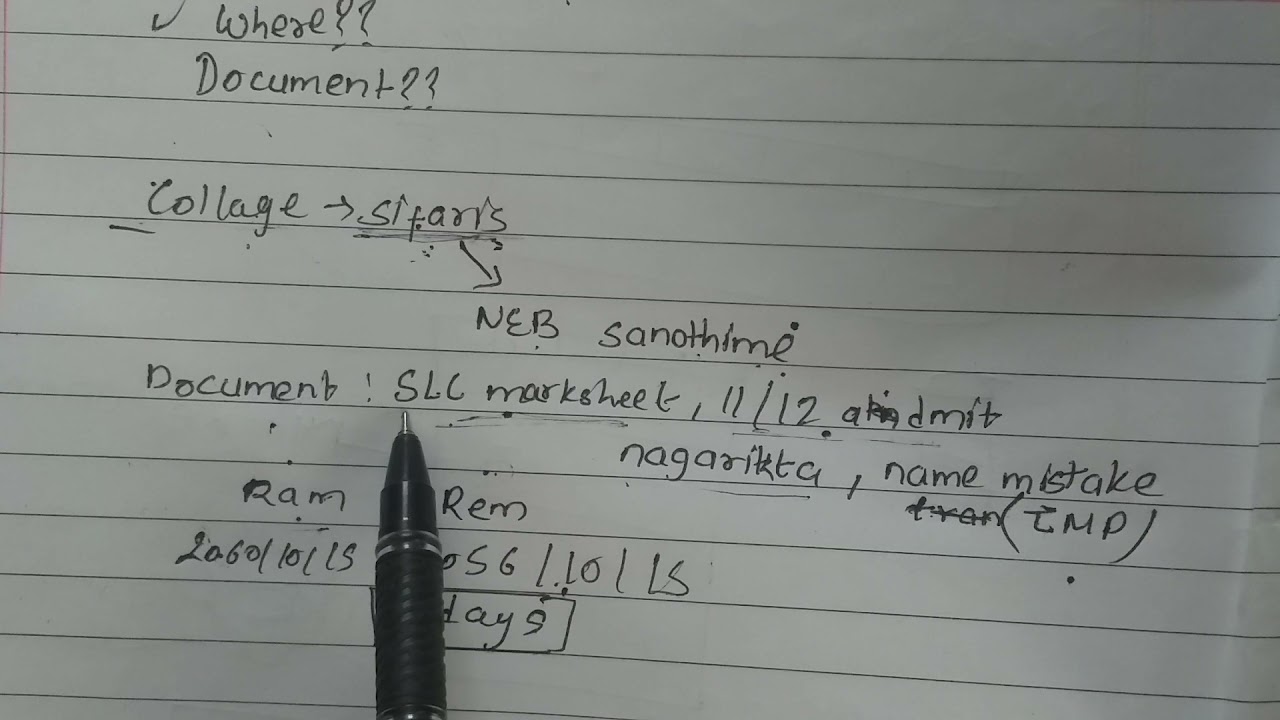 ✓ Where??
Document??
Collage → sifaris
NEB sanothimi
Document : SLC marksheet, 11/12 admit
nagarikta, name mistake
(IMP)
Ram Rem
2060/10/15 056/10/15
days